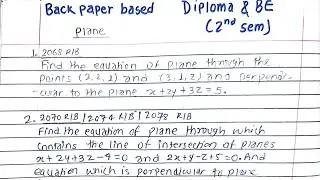 Back paper based Diploma & BE
(2nd sem)
Plane
1. 2068 RIB
Find the equation of plane through the
points (2,2,1) and (3,1,2) and perpendi-
cular to the plane x+2y+3z=5.
2. 2070 RIB / 2074 RIB / 2073 RIB
Find the equation of plane through which
contains the line of intersection of planes
x+2y+3z-4=0 and 2x+y-z+5=0. And
equation which is perpendicular to plane